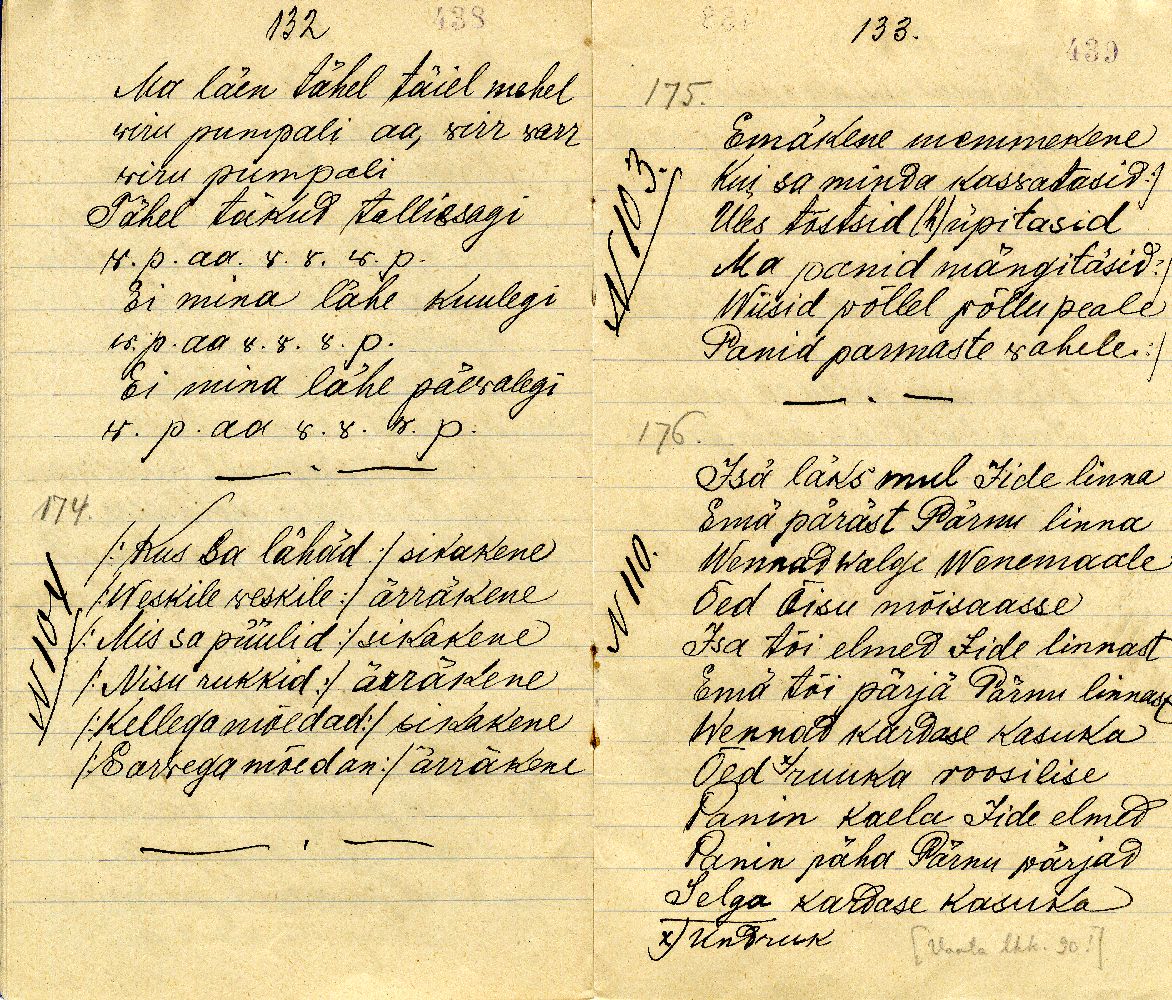 132
438
Ma läen tähel täiel mehel
wiru pumpali aa, wirr warr
wiru pumpali
Tähel täkud tallissagi
w. p. aa. w. w. w. p.
Ei mina lähe kuulegi
w. p. aa w. w. w. p.
Ei mina lähe päewalegi
w. p. aa w. w. w. p.
174.
N 104
/: Kus sa lähäd :/ sikakene
/: Weskile weskile :/ ärräkene
/: Mis sa püülid :/ sikakene
/: Nisu rukkid :/ ärräkene
/: Kellega mõedad :/ sikakene
/: Sarwega mõedan :/ ärräkene
133.
439
175.
N 103.
Emäkene memmekene
Kui sa minda kaswatasid :/
Üles tõstsid (h)üpitasid
Ma panid mängitäsid :/
Wiisid põllel põllu peale
Panid parmaste wahele :/
176.
N 110.
Isä läks mul Iide linna
Emä päräst Pärnu linna
Wennad walge Wenemaale
Õed Õisu mõisaasse
Isa tõi elmed Iide linnast
Emä tõi pärjä Pärnu linnast
Wennad kardase kasuka
Õed x/ ruuka roosilise
Panin kaela Iide elmed
Panin päha Pärnu pärjad
Selga kardase kasuka
x) Undruk
[Vaata lhk. 90!]